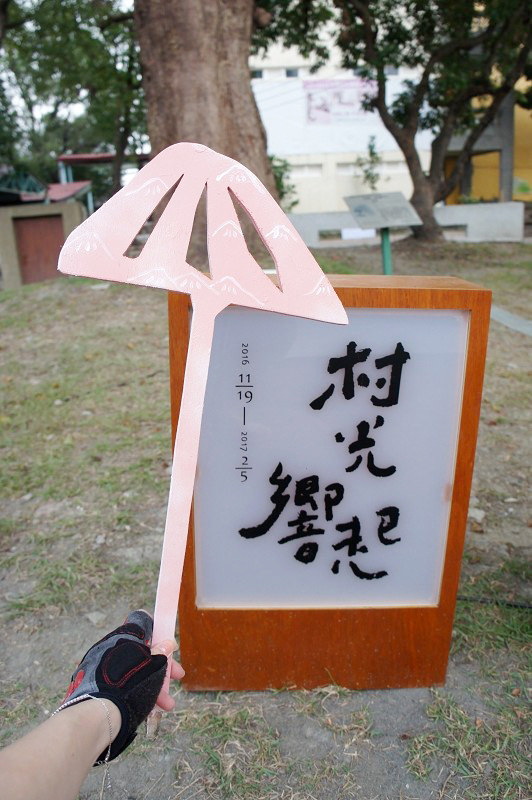 村光響起
2016 11/19 — 2017 2/5